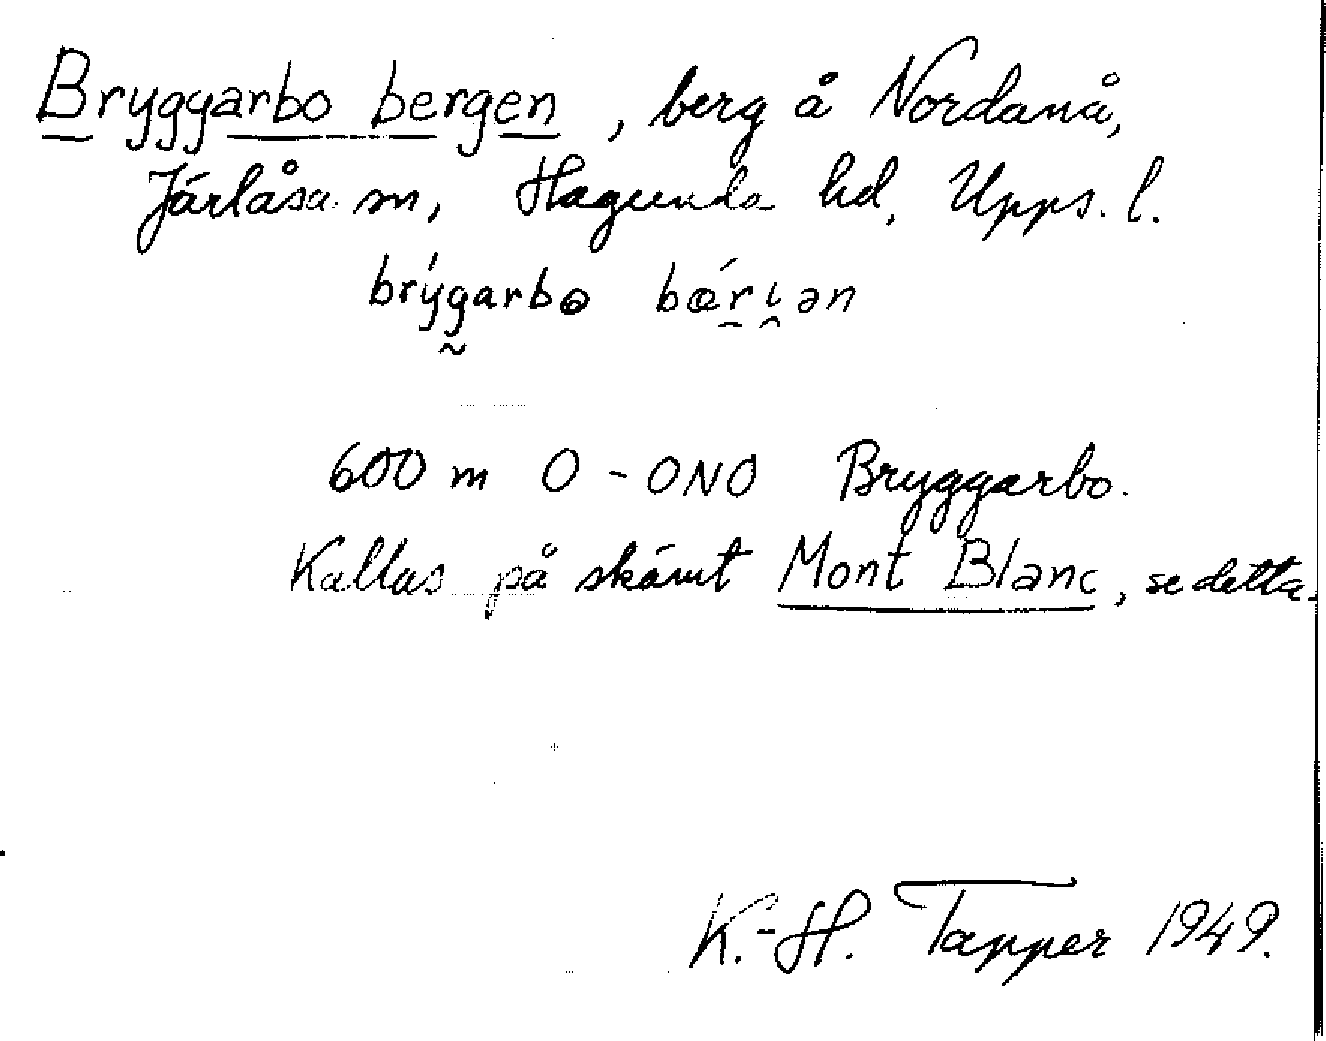 Bryggarbo bergen, berg å Nordanå,
Järlåsa sn, Hagunda hd, Upps. l.
brýg̰arbɵ bǽri̯ən
600 m O - ONO Bryggarbo.
Kallas på skämt Mont Blanc, se detta.
K.-H. Tapper 1949.